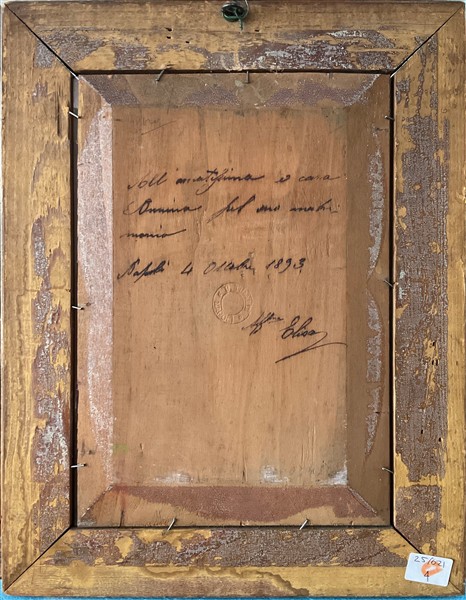 All'amatissima e cara
Annina pel suo matri
monio
Napoli 4 Ottobre 1893
Aff.ma Elisa
25/021
1